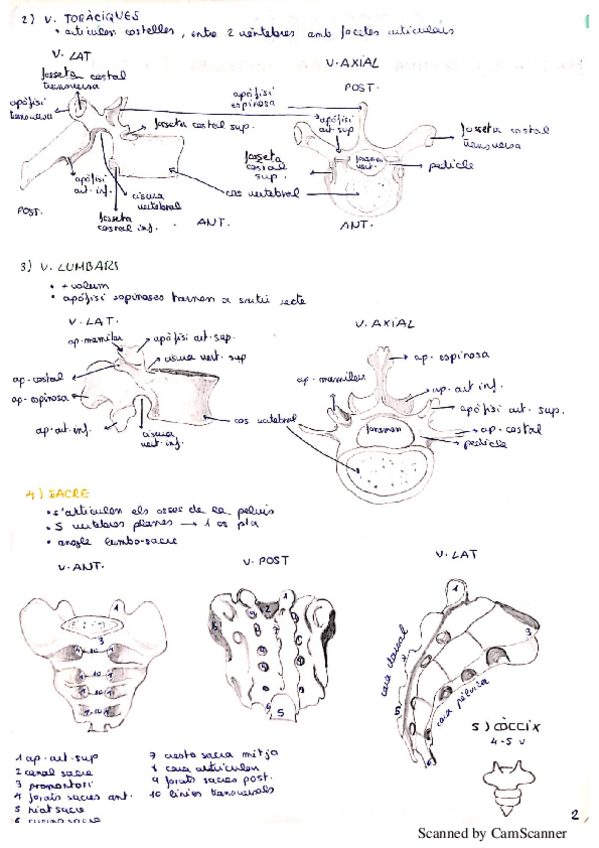 2) V. TORÀCIQUES
• articulen costelles, entre 2 vèrtebres amb facetes articulars
V. LAT
V. AXIAL
fosseta costal
transversa
POST.
apòfisi
espinosa
apòfisi
transversa
apòfisi
art sup
fosseta costal sup.
fosseta costal
transversa
fosseta
costal
sup.
foramen
vert.
pedicle
apòfisi
art. inf.
cisura
vertebral
cos vertebral
POST.
fosseta
costal inf.
ANT.
ANT.
3) V. LUMBARS
• + volum
• apòfisi espinoses tornen a sortir recte
V. LAT.
V. AXIAL
ap. mamilar
apòfisi art. sup.
cisura vert. sup
ap. espinosa
ap. costal
ap. mamilar
ap. art inf.
ap. espinosa
apòfisi art. sup.
ap. art. inf.
cisura
vert. inf.
cos vertebral
foramen
ap. costal
pedicle
4) SACRE
• s'articulen els ossos de la pelvis
• 5 vèrtebres planes → 1 os pla
• angle lumbo-sacre
V. ANT.
V. POST
V. LAT
1
3
4 10 4
10
10
4 10 4
1
2
8
9
7
6
5
1
3
cara dorsal
cara pèlvica
5
6
5) CÒCCIX
4-5 v
1 ap. art. sup
2 canal sacre
3 promontori
4 forats sacres ant.
5 hiat sacre
6
7 cresta sacra mitja
8 cara articular
9 forats sacres post.
10 línies transversals
2
Scanned by CamScanner